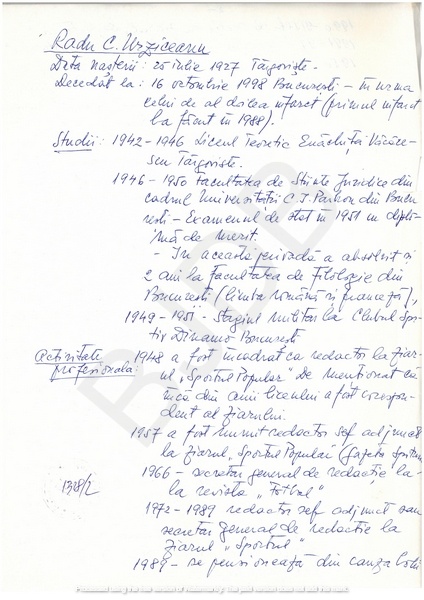 Radu C. Urziceanu
Data nașterii: 20 iulie 1927 Târgoviște.
Decedat la: 16 octombrie 1998 București – în urma
celui de al doilea infarct (primul infarct
l-a făcut în 1988).
Studii: 1942 – 1946 Liceul Teoretic Enăchiță Văcăre-
scu Târgoviște.
1946 – 1950 Facultatea de Științe Juridice din
cadrul Universității C. I. Parhon din Bucu-
rești – Examenul de stat în 1951 cu diplo-
mă de merit.
– In această perioadă a absolvit și
2 ani la Facultatea de Filologie din
București (limba română și franceză),
1949 – 1951 – Stagiul militar la Clubul Spo-
rtiv Dinamo București
Activitate 1948 a fost încadrat ca redactor la Ziar-
profesională: ul „Sportul Popular" De menționat că
încă din anii liceului a fost corespon-
dent al ziarului.
1957 a fost numit redactor șef adjunct
la Ziarul „Sportul Popular"
1966 – secretar general de redacție la
la revista „Fotbal"
1328/2
1972 – 1989 redactor șef adjunct sau
secretar general de redacție la
ziarul „Sportul"
1989 – se pensionează din cauza